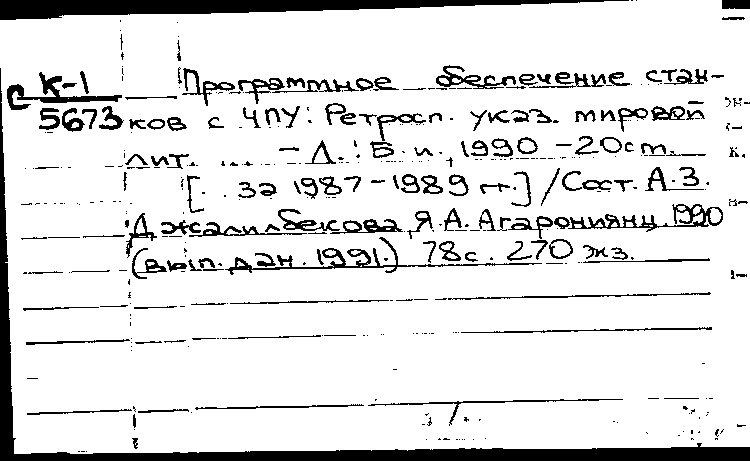 С К-1
5673
Программное обеспечение стан-
ков с ЧПУ: Ретросп. указ. мировой
лит. ... - Л.: Б. и., 1990 - 20 см.
[. . за 1987-1989 гг.] / Сост. А.З.
Джалилбекова, Я.А. Агарониянц. 1990
(вып. дан. 1991.) 78с. 270 экз.